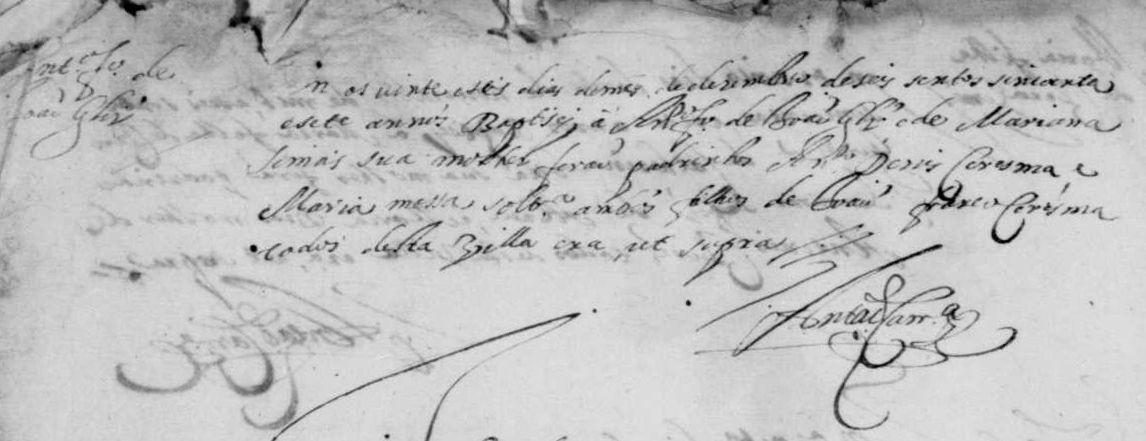 Ant.º f.º de
João Glz
in os vinte e seis dias do mes de dezembro de seis sentos sincoenta
e sete annos Baptisei a Ant.º f.º de João Glz e de Mariana
simois sua molher forão padrinhos Ant.º Denis Coresma e
Maria messa solt.ra anbos filhos de João franco Coresma
todos desta Villa era ut supra
Antão Carr.ª